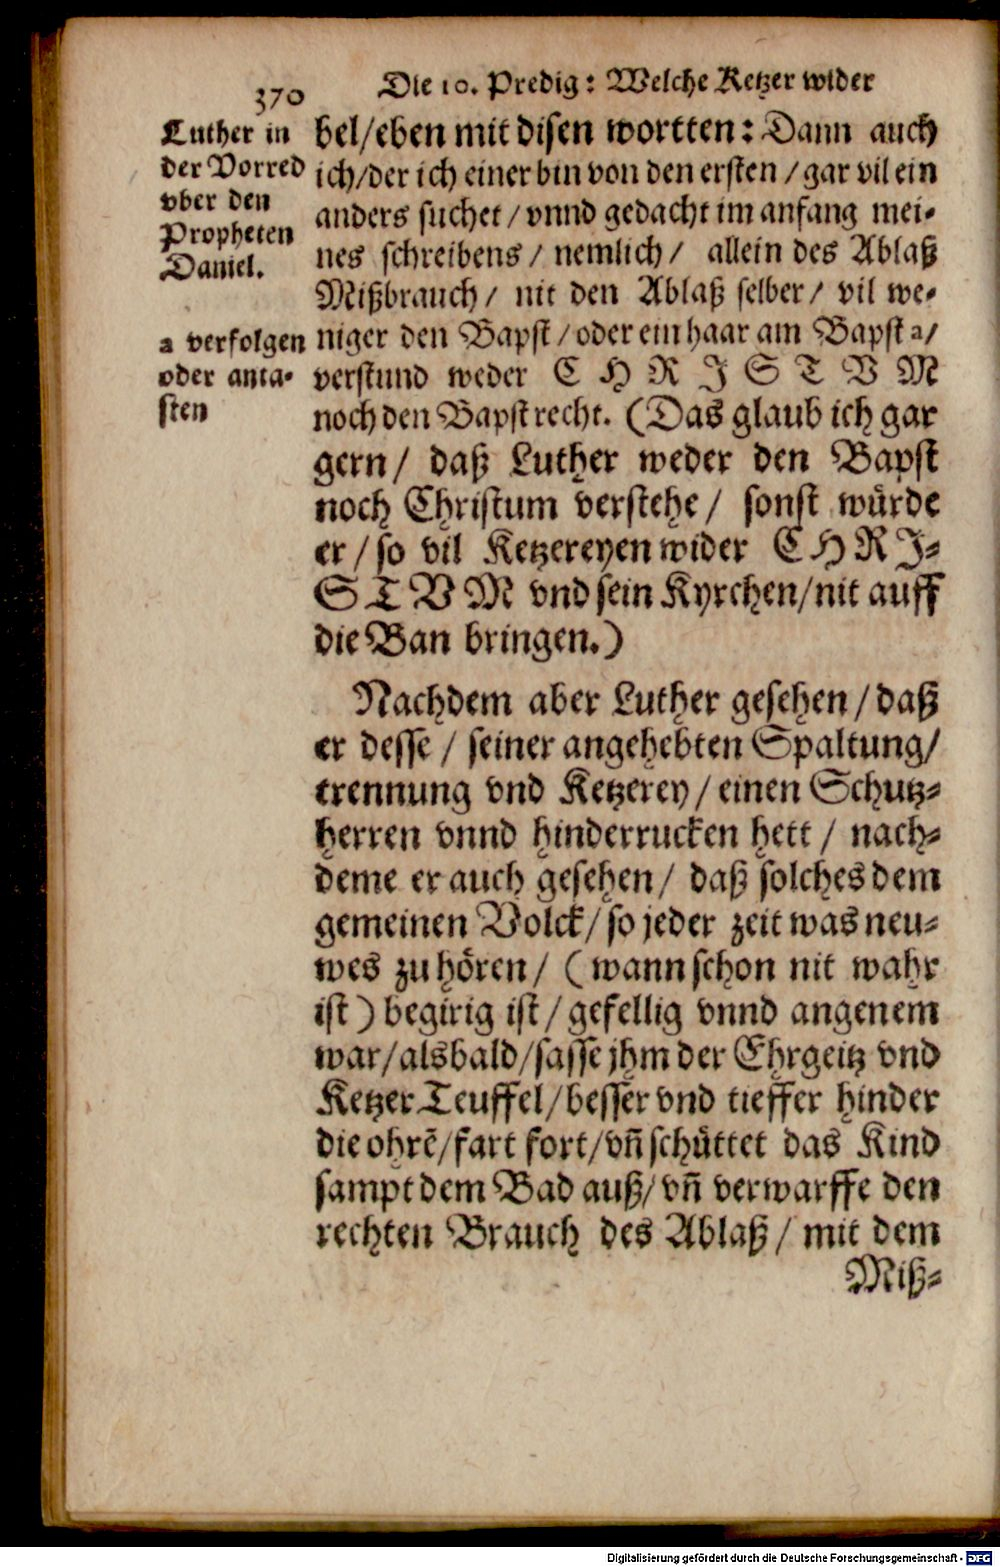 370
Die 10. Predig: Welche Ketzer wider
Luther in
der Vorred
vber den
Propheten
Daniel.
a verfolgen
oder anta-
sten
bel/eben mit disen wortten: Dann auch
ich/der ich einer bin von den ersten/gar vil ein
anders suchet/vnnd gedacht im anfang mei-
nes schreibens/ nemlich/ allein des Ablaß
Mißbrauch/ nit den Ablaß selber/ vil we-
niger den Bapst/oder ein haar am Bapst a/
verstund weder C H R I S T V M
noch den Bapst recht. (Das glaub ich gar
gern/ daß Luther weder den Bapst
noch Christum verstehe/ sonst würde
er/so vil Ketzereyen wider C H R I-
S T V M vnd sein Kyrchen/nit auff
die Ban bringen.)
Nachdem aber Luther gesehen/daß
er desse/ seiner angehebten Spaltung/
trennung vnd Ketzerey/einen Schutz-
herren vnnd hinderrucken hett/ nach-
deme er auch gesehen/ daß solches dem
gemeinen Volck/so jeder zeit was neu-
wes zu hören/ (wann schon nit wahr
ist) begirig ist/gefellig vnnd angenem
war/alsbald/sasse jhm der Ehrgeitz vnd
Ketzer Teuffel/besser vnd tieffer hinder
die ohrē/fart fort/vñ schüttet das Kind
sampt dem Bad auß/vñ verwarffe den
rechten Brauch des Ablaß/ mit dem
Miß-
Digitalisierung gefördert durch die Deutsche Forschungsgemeinschaft - DFG